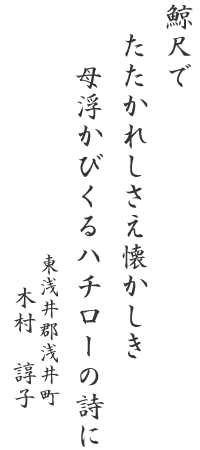 鯨尺で
たたかれしさえ懐かしき
母浮かびくるハチローの詩に
東浅井郡浅井町
木村　諄子